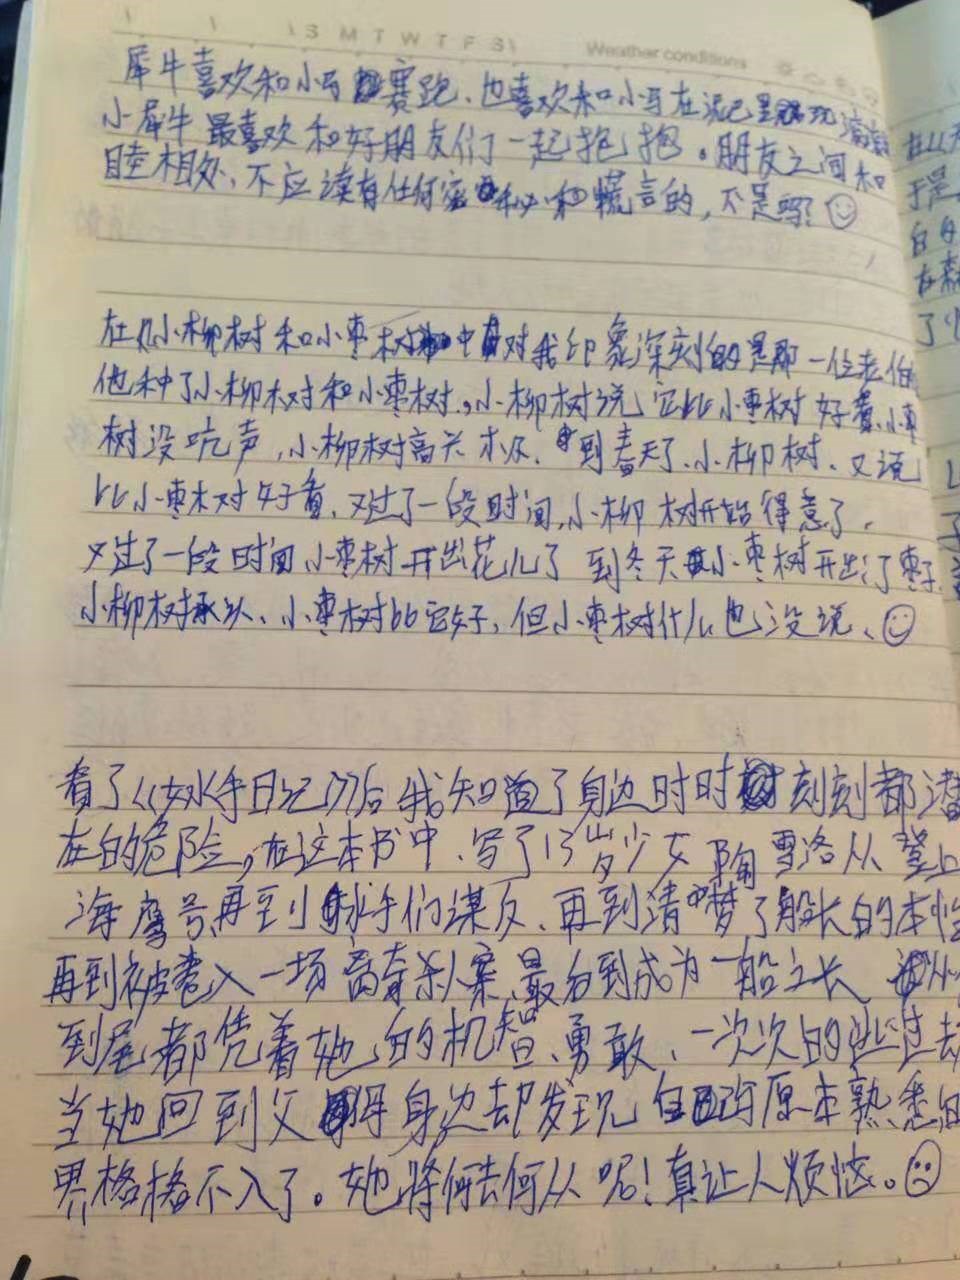 S M T W T F S
Weather conditions
犀牛喜欢和小马赛跑、也喜欢和小马在泥巴里玩
小犀牛最喜欢和好朋友们一起抱抱。朋友之间和
睦相处,不应该有任何密和慌言的,不是吗?
在《小柳树和小枣树中对我印象深刻的是那一位老伯
他种了小柳树和小枣树,小柳树说它比小枣树好看、小枣
树没吭声,小柳树高兴极了、到春天了、小柳树、又说
比小枣树好看、又过了一段时间,小柳树开始得意了,
又过了一段时间小枣树开出花儿了到冬天小枣树开出了枣子、
小柳树承认、小枣树比它好,但小枣树什么也没说、
看了《女水手日记》后我知道了身边时时刻刻都潜
在的危险,在这本书中、写了13岁少女雪洛从登上
海鹰号、再到水手们谋反、再到清梦了船长的本性
再到被卷入一场离奇杀人案、最后到成为一船之长、从
到尾都凭着她的机智、勇敢、一次次的逃过
当她回到父母身边却发现自己与原本熟悉的
界格格不入了。她将何去何从呢!真让人烦恼。